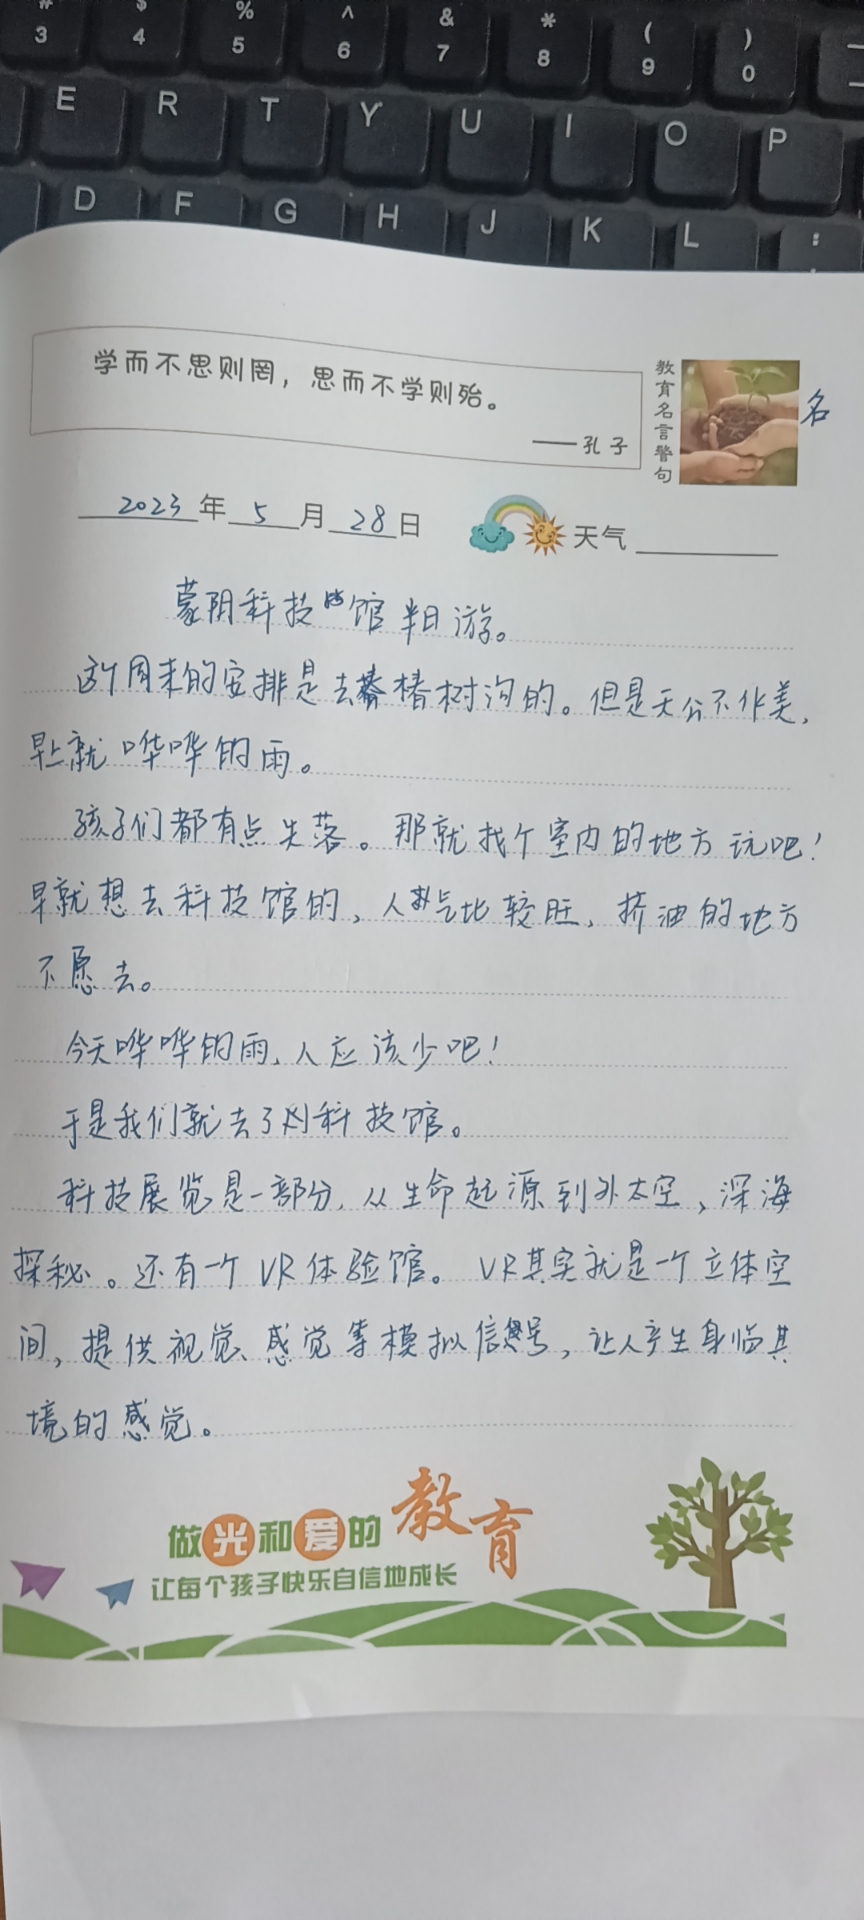 # $ % ^ & * ( )
3 4 5 6 7 8 9 0
E R T Y U I O P
D F G H J K L :
学而不思则罔，思而不学则殆。
——孔子
教育名言警句
名
2023年5月28日 天气
蒙阴科技馆半日游。
这个周末的安排是去椿树沟的。但是天公不作美，
早上就哗哗的雨。
孩子们都有点失落。那就找个室内的地方玩吧！
早就想去科技馆的，人气比较旺，挤油的地方
不愿去。
今天哗哗的雨，人应该少吧！
于是我们就去了科技馆。
科技展览是一部分，从生命起源到外太空、深海
探秘。还有一个VR体验馆。VR其实就是一个立体空
间，提供视觉、感觉等模拟信号，让人产生身临其
境的感觉。
做光和爱的教育
让每个孩子快乐自信地成长